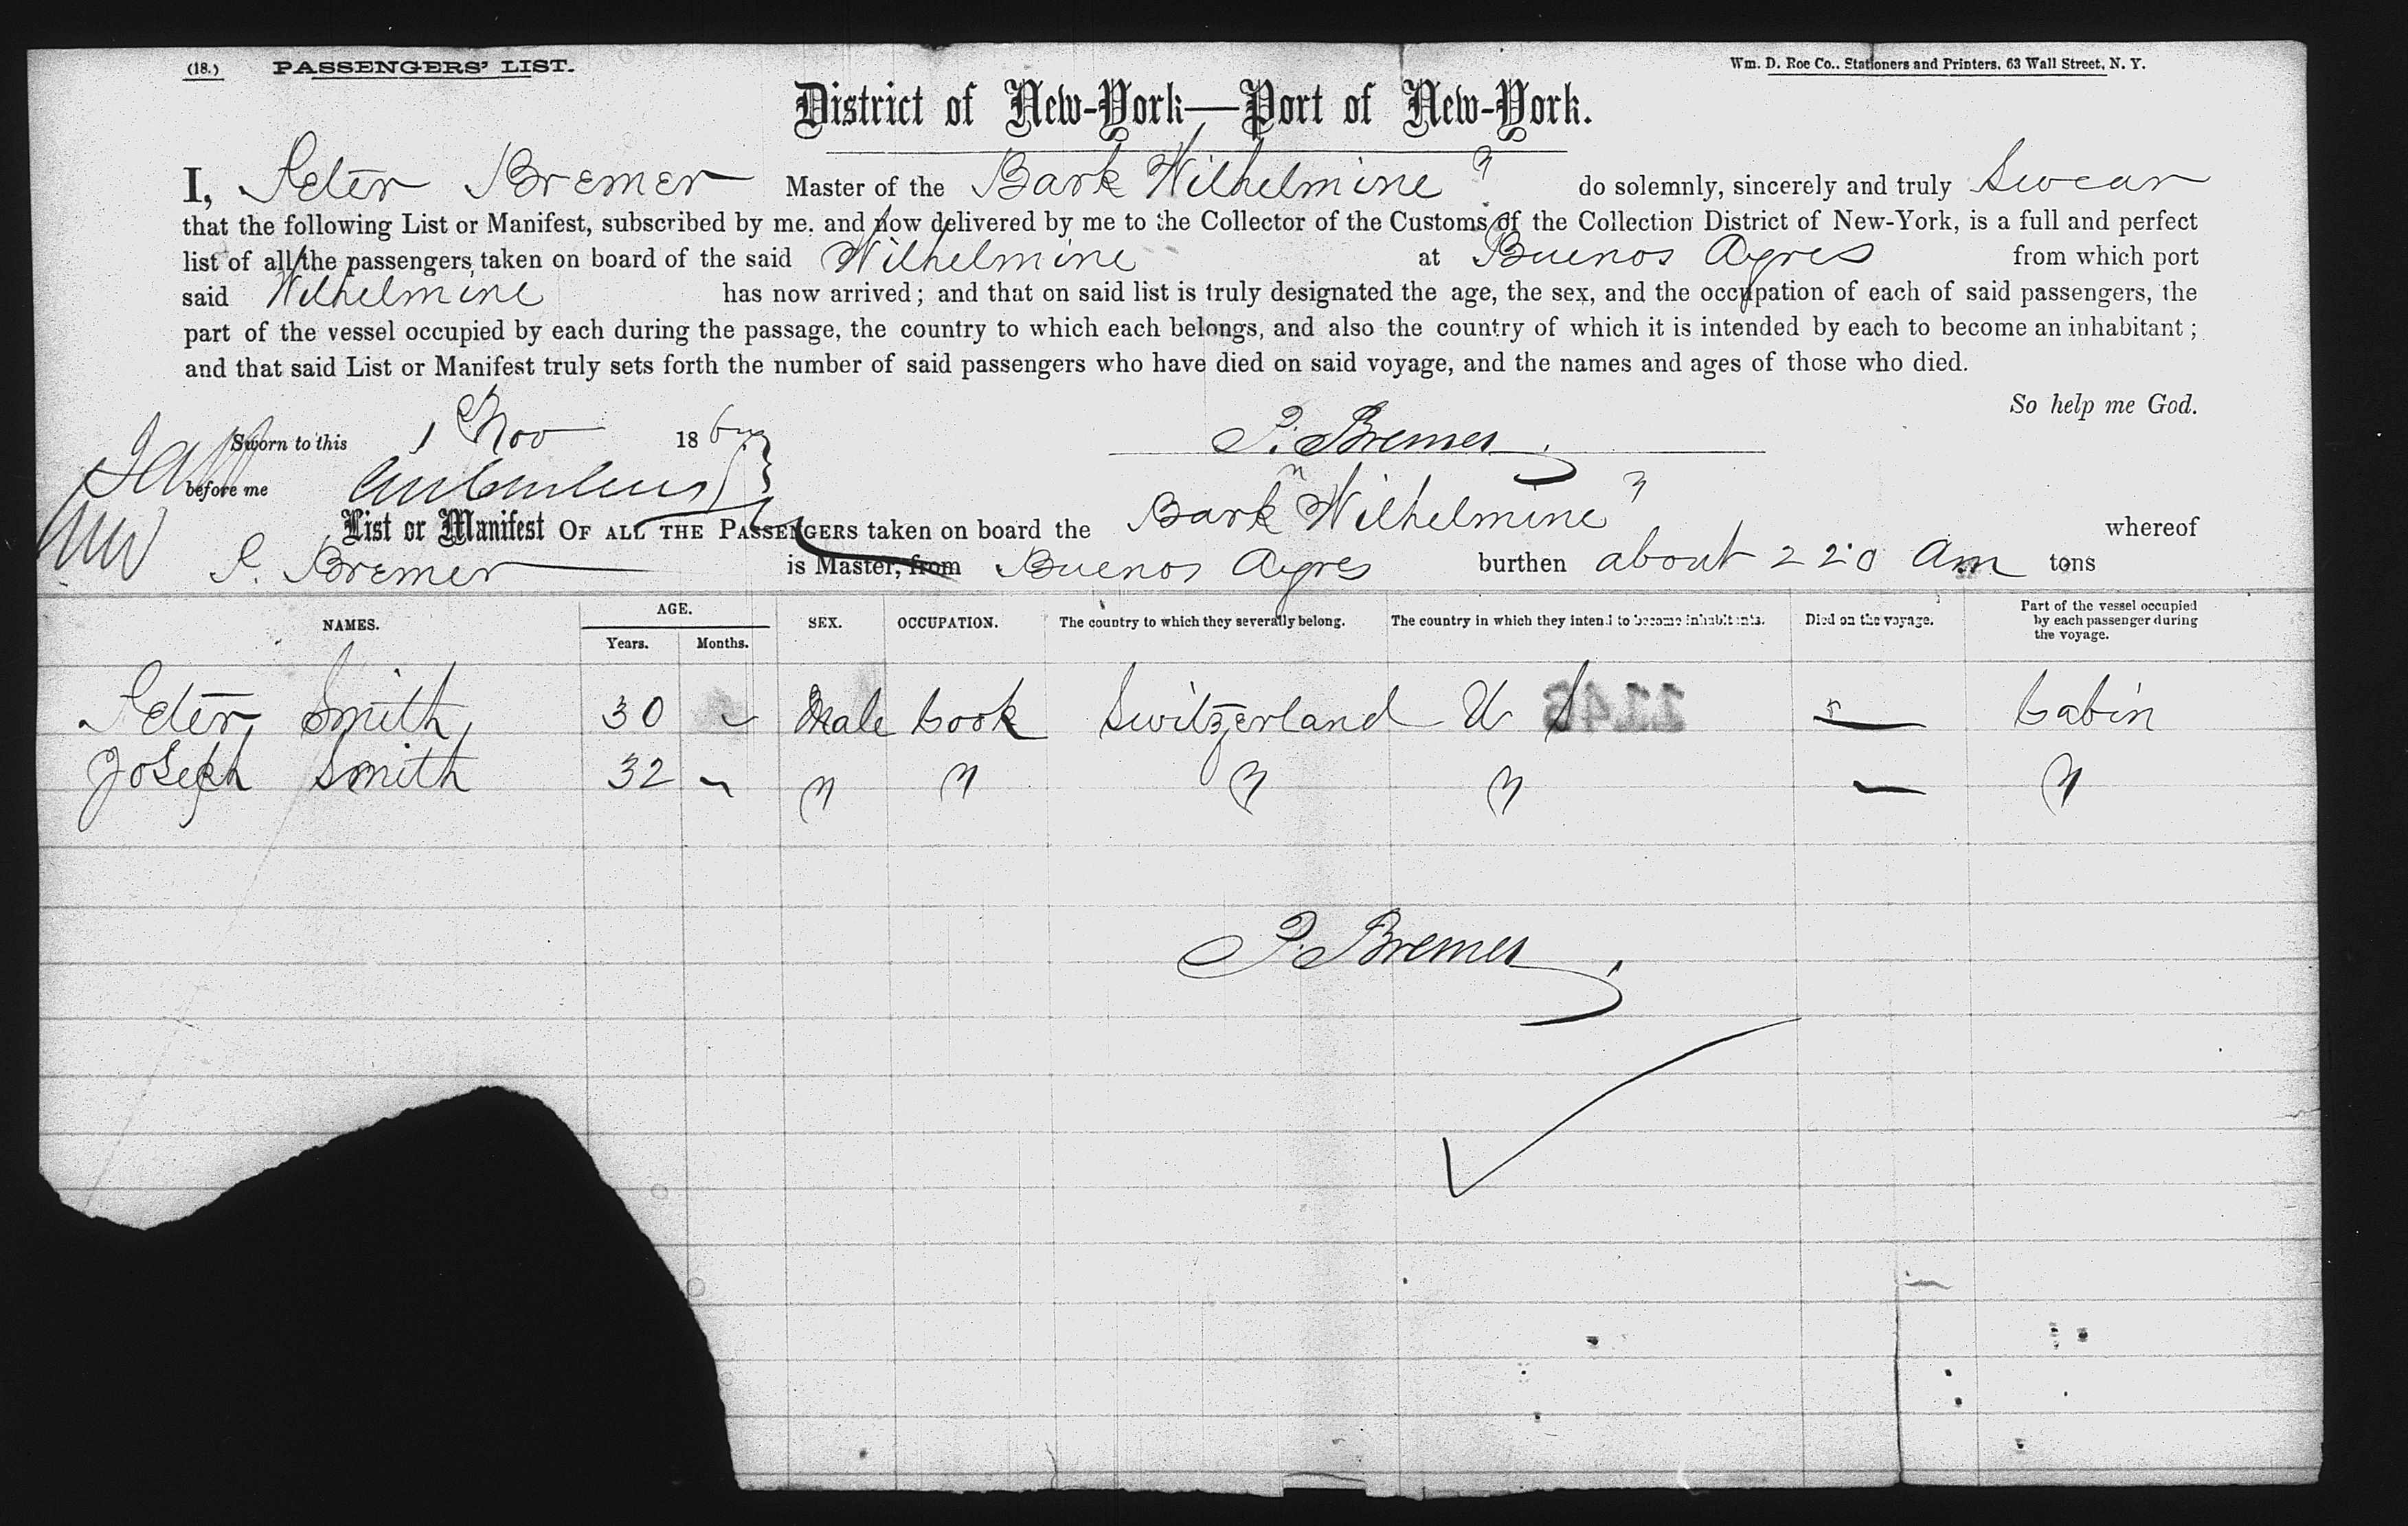 (18.) PASSENGERS' LIST.
Wm. D. Roe Co., Stationers and Printers, 63 Wall Street, N. Y.
District of New-York—Port of New-York.
I, Peter Bremer Master of the Bark Wilhelmine" do solemnly, sincerely and truly Swear
that the following List or Manifest, subscribed by me, and now delivered by me to the Collector of the Customs of the Collection District of New-York, is a full and perfect
list of all the passengers taken on board of the said Wilhelmine at Buenos Ayres from which port
said Wilhelmine has now arrived; and that on said list is truly designated the age, the sex, and the occupation of each of said passengers, the
part of the vessel occupied by each during the passage, the country to which each belongs, and also the country of which it is intended by each to become an inhabitant;
and that said List or Manifest truly sets forth the number of said passengers who have died on said voyage, and the names and ages of those who died.
So help me God.
Sworn to this 1 Nov 186
P. Bremer
before me
List or Manifest OF ALL THE PASSENGERS taken on board the Bark "Wilhelmine" whereof
P. Bremer is Master, from Buenos Ayres burthen about 220 am tons
NAMES. AGE. Years. Months. SEX. OCCUPATION. The country to which they severally belong. The country in which they intend to become inhabitants. Died on the voyage. Part of the vessel occupied by each passenger during the voyage.
Peter Smith 30 – Male Cook Switzerland U S — Cabin
Joseph Smith 32 – " " " " — "
P. Bremer